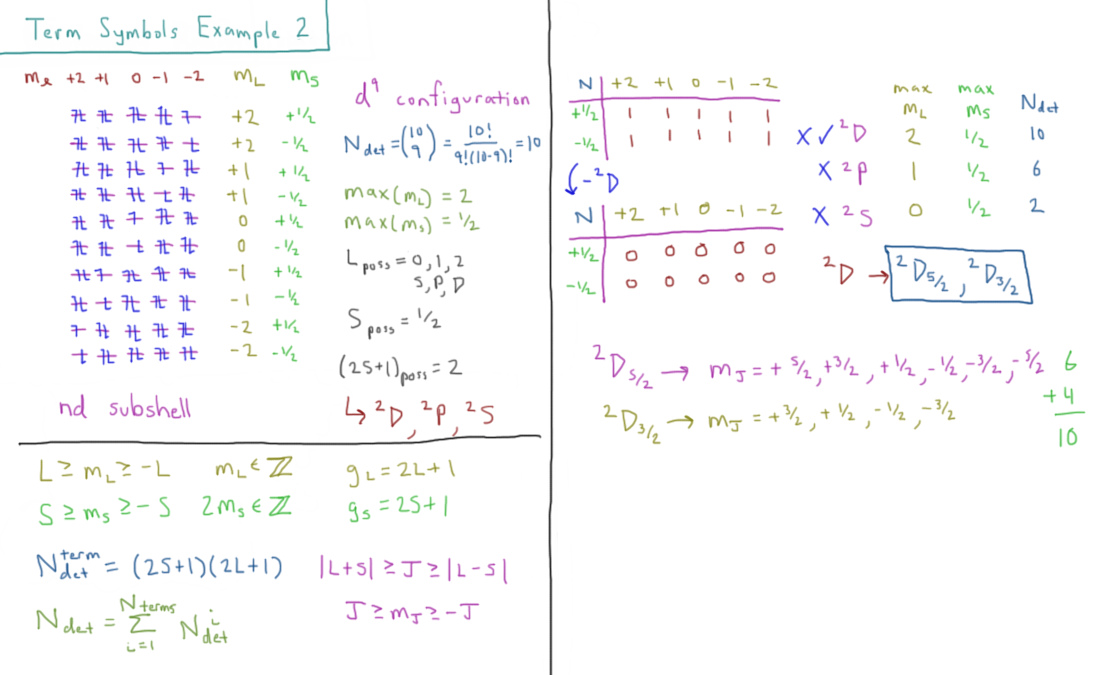 Term Symbols Example 2
mℓ +2 +1 0 -1 -2 m_L m_s
+2 +½
+2 -½
+1 +½
+1 -½
0 +½
0 -½
-1 +½
-1 -½
-2 +½
-2 -½
nd subshell
d⁹ configuration
N_det = (10 9) = 10!/9!(10-9)! = 10
max(m_L) = 2
max(m_s) = ½
L_poss = 0, 1, 2
S, P, D
S_poss = ½
(2S+1)_poss = 2
↳ ²D, ²P, ²S
L ≥ m_L ≥ -L m_L ∈ ℤ g_L = 2L+1
S ≥ m_s ≥ -S 2m_s ∈ ℤ g_s = 2S+1
N_det^term = (2S+1)(2L+1) |L+S| ≥ J ≥ |L-S|
N_det = Σ_{i=1}^{N_terms} N_det^i J ≥ m_J ≥ -J
N +2 +1 0 -1 -2
+½ 1 1 1 1 1
-½ 1 1 1 1 1
-²D
N +2 +1 0 -1 -2
+½ 0 0 0 0 0
-½ 0 0 0 0 0
max m_L max m_s N_det
X ✓ ²D 2 ½ 10
X ²P 1 ½ 6
X ²S 0 ½ 2
²D → ²D_5/2, ²D_3/2
²D_5/2 → m_J = + 5/2, +3/2, +½, -½, -3/2, -5/2 6
²D_3/2 → m_J = +3/2, +½, -½, -3/2 +4
10